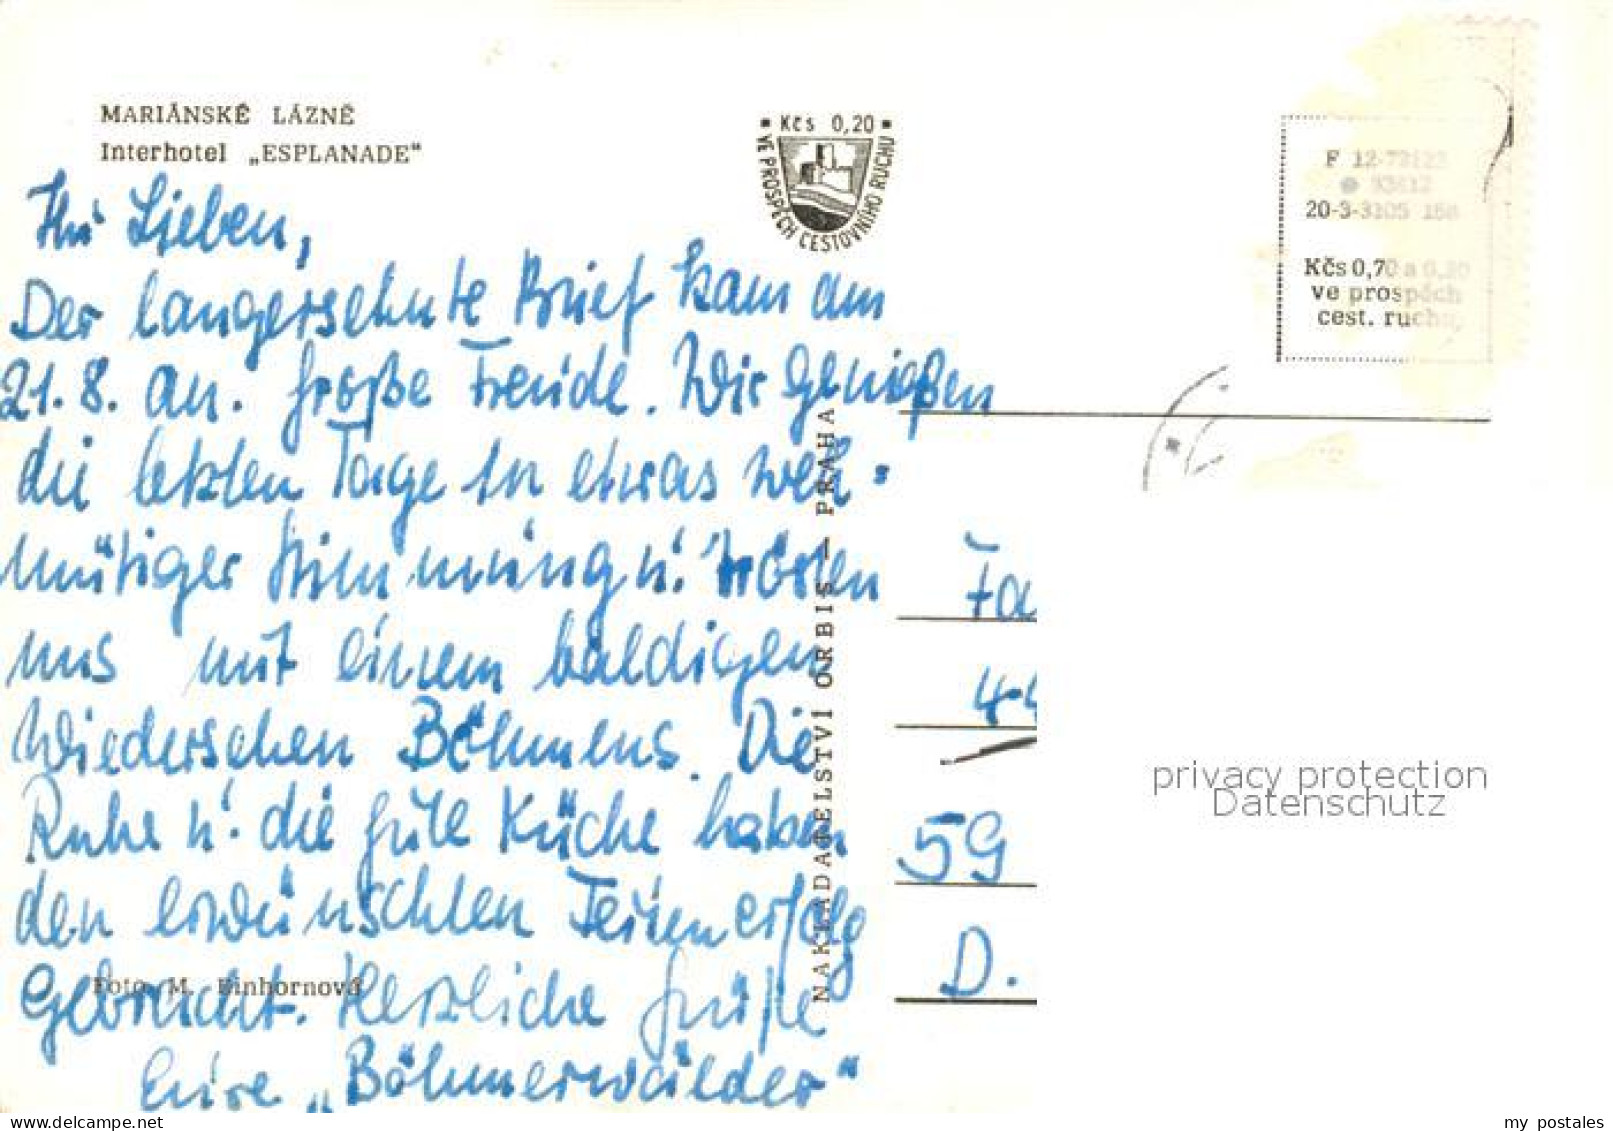 MARIÁNSKÉ LÁZNĚ
Interhotel „ESPLANADE“
Kčs 0,20
VE PROSPĚCH CESTOVNÍHO RUCHU
F 12-72123
20-3-3105
Kčs 0,70 a 0,20
ve prospěch
cest. ruchu
Ihr Lieben,
Der langersehnte Brief kam am
21.8. an. Große Freude. Wir genießen
die letzten Tage in etwas weh=
mütiger Stimmung u. trösten
uns mit einem baldigen
Wiedersehen Böhmens. Die
Ruhe u. die gute Küche haben
den erwünschten Ferienerfolg
Gebracht. Herzliche Grüße
Eure „Böhmerwäldler“
Foto M. Einhornová
NAKLADATELSTVÍ ORBIS – PRAHA
Fa
44
59
D.
privacy protection
Datenschutz
my postales
delcampe.net